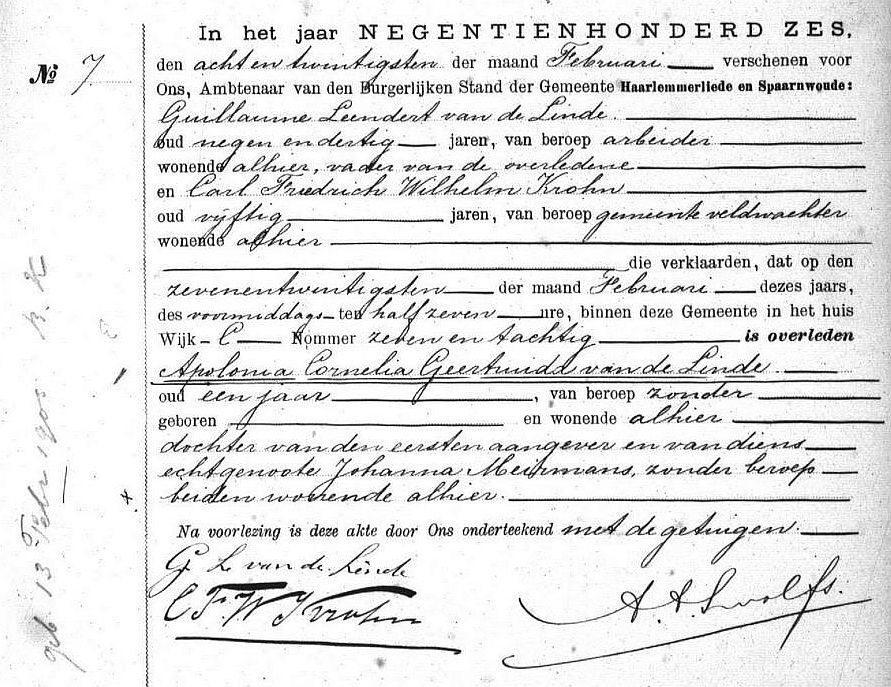 In het jaar NEGENTIENHONDERD ZES,
No 7
den acht en twintigsten der maand Februari verschenen voor
Ons, Ambtenaar van den Burgerlijken Stand der Gemeente Haarlemmerliede en Spaarnwoude:
Guillaume Leendert van de Linde.
oud negen en dertig jaren, van beroep arbeider
wonende alhier, vader van de overledene
en Carl Friedrich Wilhelm Krohn
oud vijftig jaren, van beroep gemeente veldwachter
wonende alhier
die verklaarden, dat op den
zevenentwintigsten der maand Februari dezes jaars,
des voormiddags ten half zeven ure, binnen deze Gemeente in het huis
Wijk C Nommer zeven en tachtig is overleden
Apolonia Cornelia Geertruida van de Linde.
oud een jaar, van beroep zonder
geboren en wonende alhier
dochter van den eersten aangever en van diens
echtgenoote Johanna Meijrmans, zonder beroep
beiden wonende alhier.
Na voorlezing is deze akte door Ons onderteekend met de getuigen.
G. L. van de Linde
C F. W Krohn
geb. 13 Febr 1905 R. K